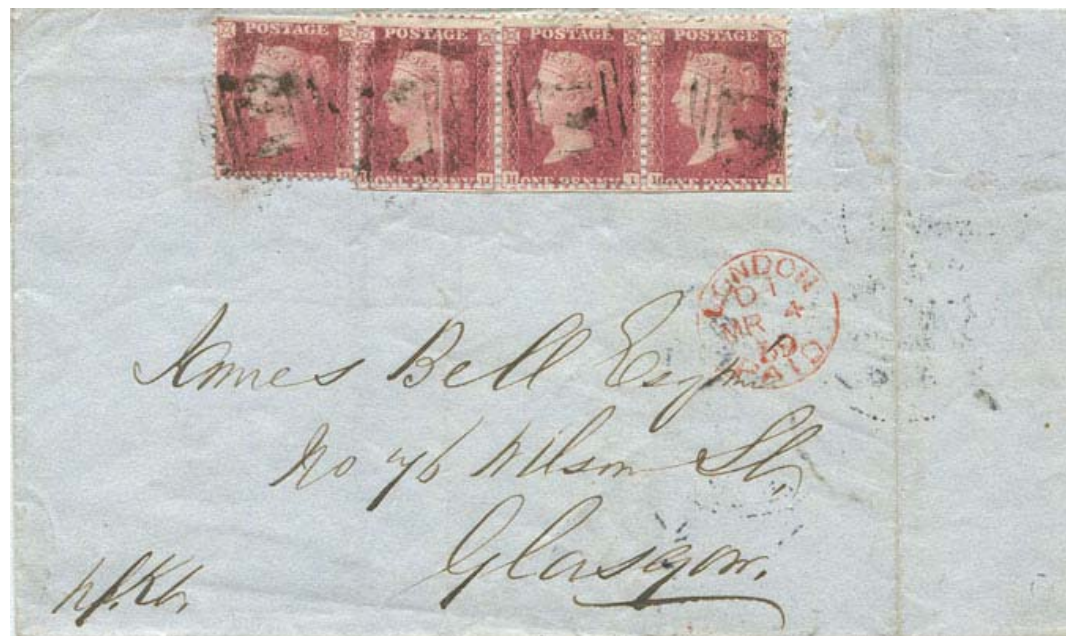 POSTAGE POSTAGE POSTAGE POSTAGE
ONE PENNY ONE PENNY ONE PENNY
LONDON
D 1
MR 4
59
PAID
James Bell Esqr
No 76 Wilson St,
Glasgow.